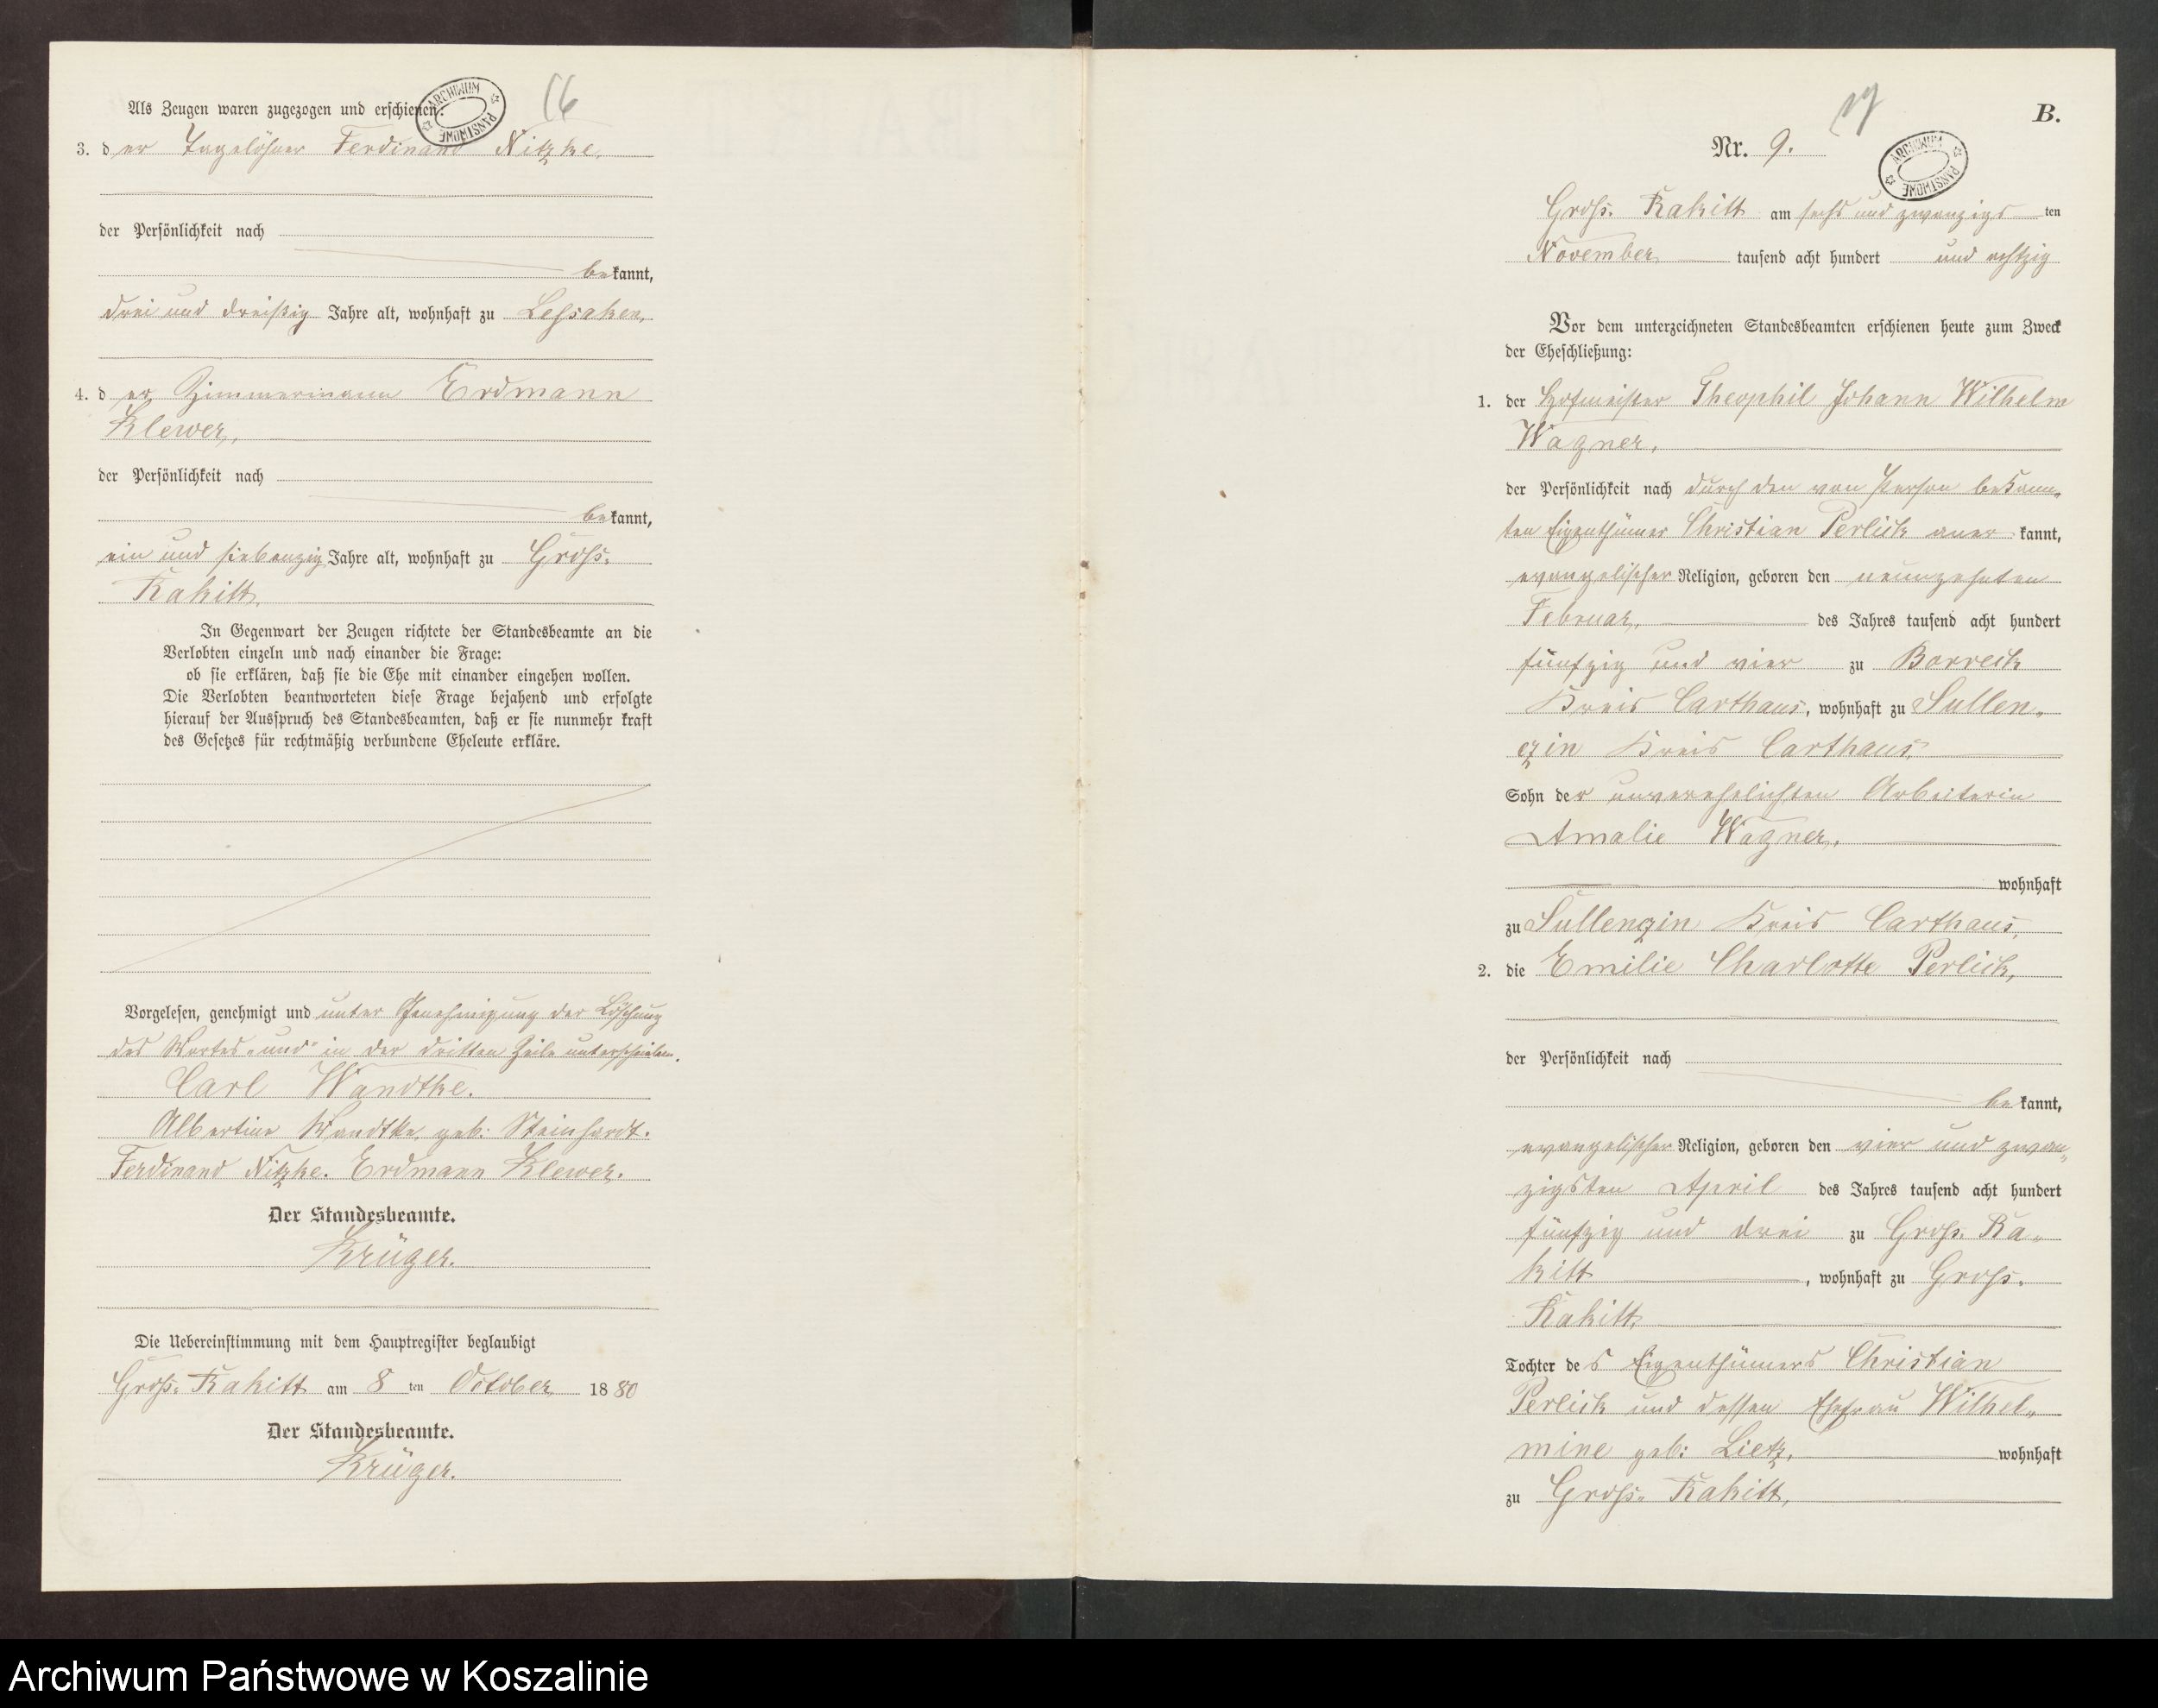 16
Als Zeugen waren zugezogen und erschienen:
ARCHIWUM PAŃSTWOWE
3. d er Tagelöhner Ferdinand Nitzke,
der Persönlichkeit nach
bekannt,
drei und dreißig Jahre alt, wohnhaft zu Lessaken,
4. d er Zimmermann Erdmann
Klewer,
der Persönlichkeit nach
bekannt,
ein und siebenzig Jahre alt, wohnhaft zu Gross-
Rakitt.
In Gegenwart der Zeugen richtete der Standesbeamte an die
Verlobten einzeln und nach einander die Frage:
ob sie erklären, daß sie die Ehe mit einander eingehen wollen.
Die Verlobten beantworteten diese Frage bejahend und erfolgte
hierauf der Ausspruch des Standesbeamten, daß er sie nunmehr kraft
des Gesetzes für rechtmäßig verbundene Eheleute erkläre.
Vorgelesen, genehmigt und unter Genehmigung der Löschung
des Wortes „und“ in der dritten Zeile unterschrieben.
Carl Wandtke.
Albertine Wandtke, geb: Steinhardt.
Ferdinand Nitzke. Erdmann Klewer.
Der Standesbeamte.
Krüger.
Die Uebereinstimmung mit dem Hauptregister beglaubigt
Gross-Rakitt am 8 ten October 18 80
Der Standesbeamte.
Krüger.
17
B.
Nr. 9.
ARCHIWUM PAŃSTWOWE
Gross-Rakitt am sechs und zwanzigs ten
November tausend acht hundert und achtzig
Vor dem unterzeichneten Standesbeamten erschienen heute zum Zweck
der Eheschließung:
1. der Hofmeister Theophil Johann Wilhelm
Wagner,
der Persönlichkeit nach durch den von Person bekann-
ten Eigenthümer Christian Perlick aner kannt,
evangelischer Religion, geboren den neunzehnten
Februar, des Jahres tausend acht hundert
fünfzig und vier zu Borreck
Kreis Carthaus, wohnhaft zu Sullen-
czin Kreis Carthaus,
Sohn der unverehelichten Arbeiterin
Amalie Wagner,
wohnhaft
zu Sullenczin Kreis Carthaus,
2. die Emilie Charlotte Perlick,
der Persönlichkeit nach
be kannt,
evangelischer Religion, geboren den vier und zwan-
zigsten April des Jahres tausend acht hundert
fünfzig und drei zu Gross-Ra-
kitt, wohnhaft zu Gross-
Rakitt,
Tochter de s Eigenthümers Christian
Perlick und dessen Ehefrau Wilhel-
mine geb: Lietz, wohnhaft
zu Gross-Rakitt,
Archiwum Państwowe w Koszalinie